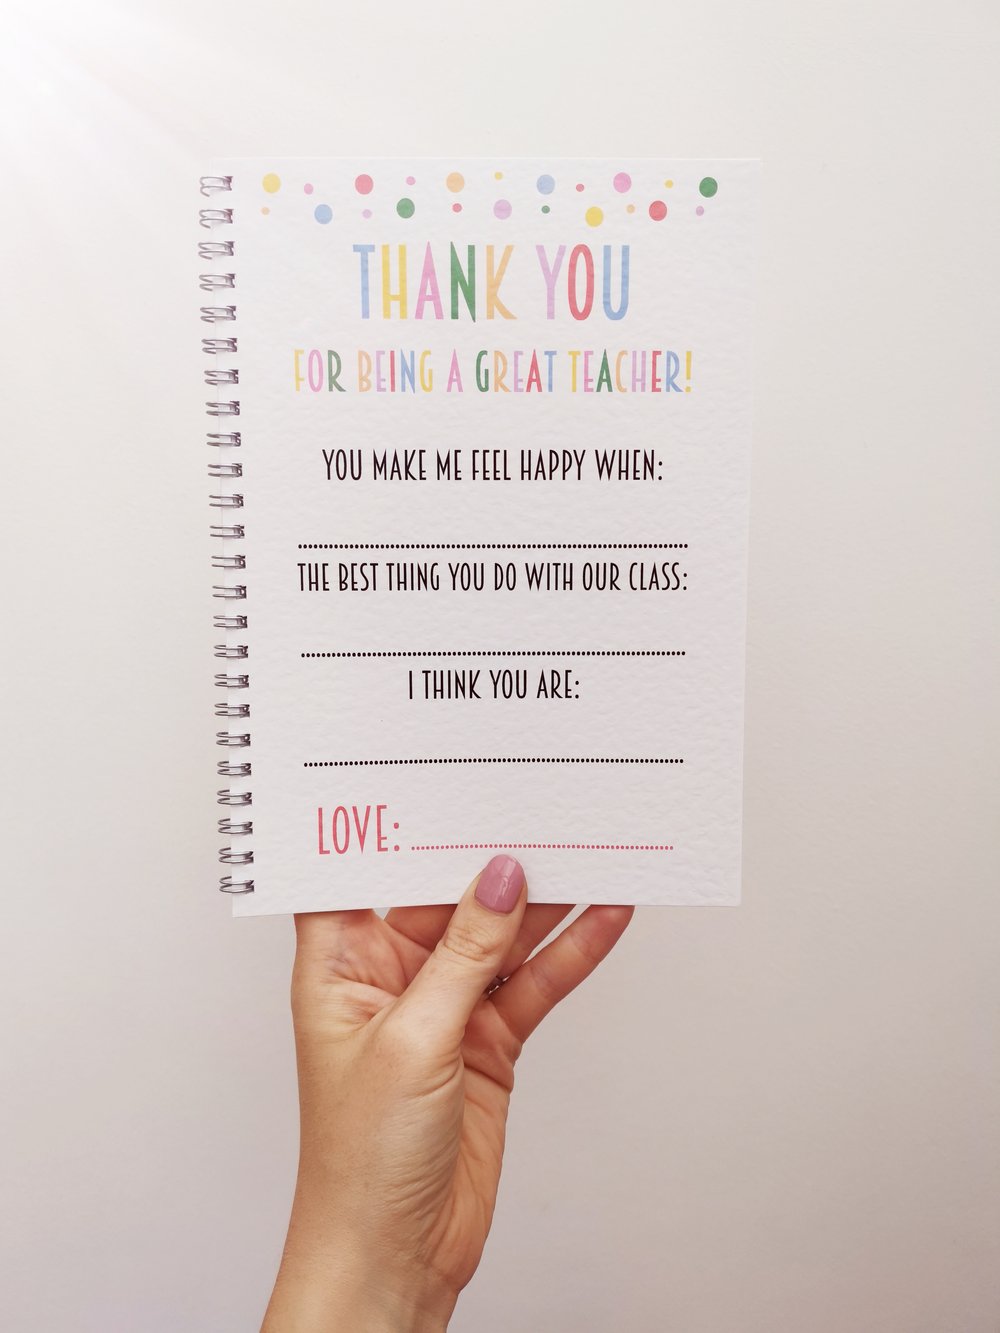 THANK YOU
FOR BEING A GREAT TEACHER!
YOU MAKE ME FEEL HAPPY WHEN:
THE BEST THING YOU DO WITH OUR CLASS:
I THINK YOU ARE:
LOVE: